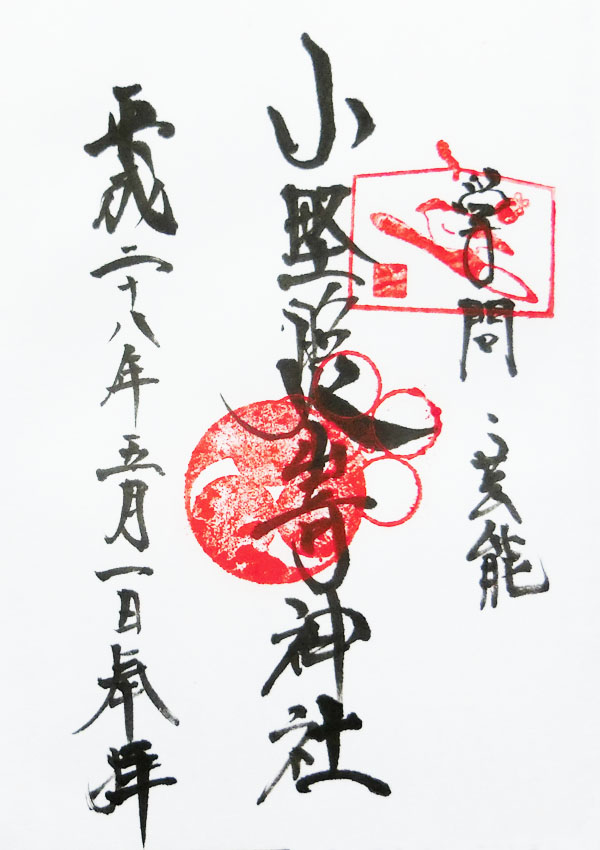 学問、芸能
小野照嵜神社
平成二十八年五月一日奉拝